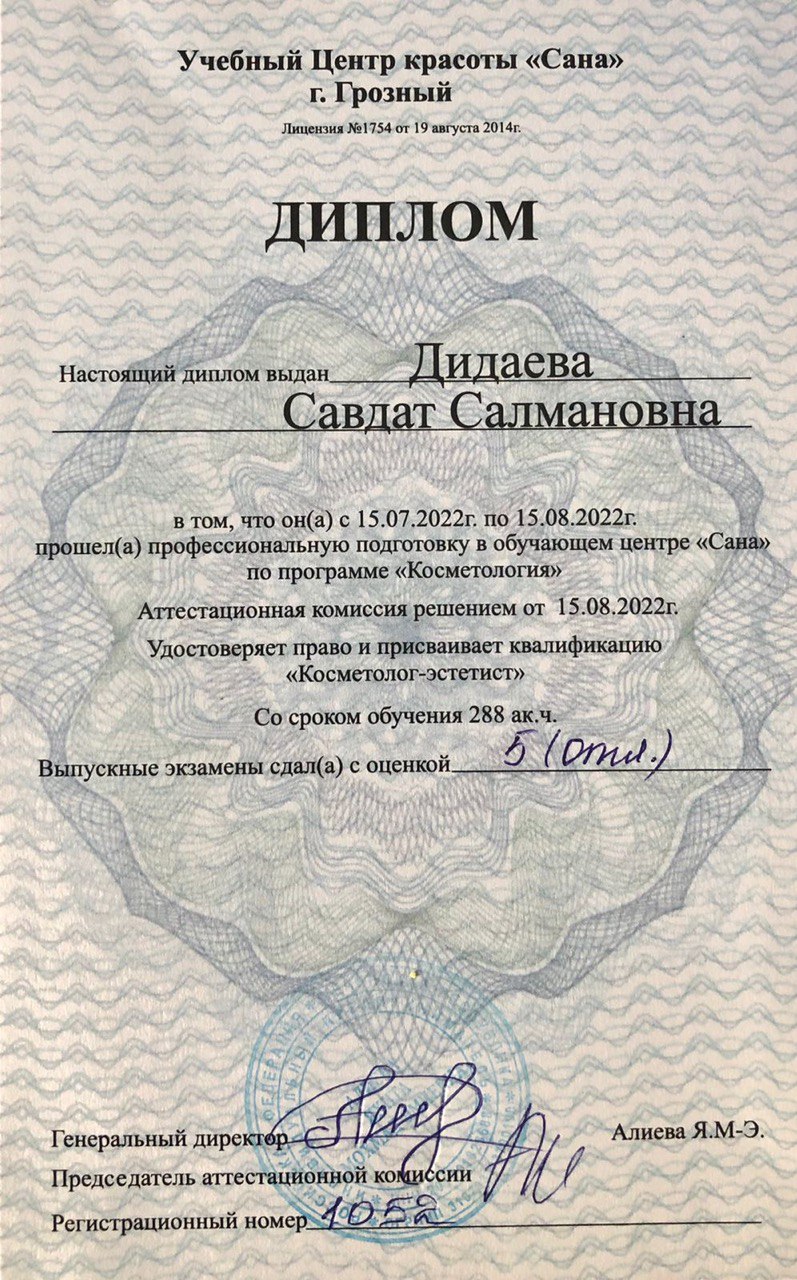 Учебный Центр красоты «Сана»
г. Грозный
Лицензия №1754 от 19 августа 2014г.
ДИПЛОМ
Настоящий диплом выдан Дидаева
Савдат Салмановна
в том, что он(а) с 15.07.2022г. по 15.08.2022г.
прошел(а) профессиональную подготовку в обучающем центре «Сана»
по программе «Косметология»
Аттестационная комиссия решением от 15.08.2022г.
Удостоверяет право и присваивает квалификацию
«Косметолог-эстетист»
Со сроком обучения 288 ак.ч.
Выпускные экзамены сдал(а) с оценкой 5 (отл.)
Генеральный директор Алиева Я.М-Э.
Председатель аттестационной комиссии
Регистрационный номер 1052